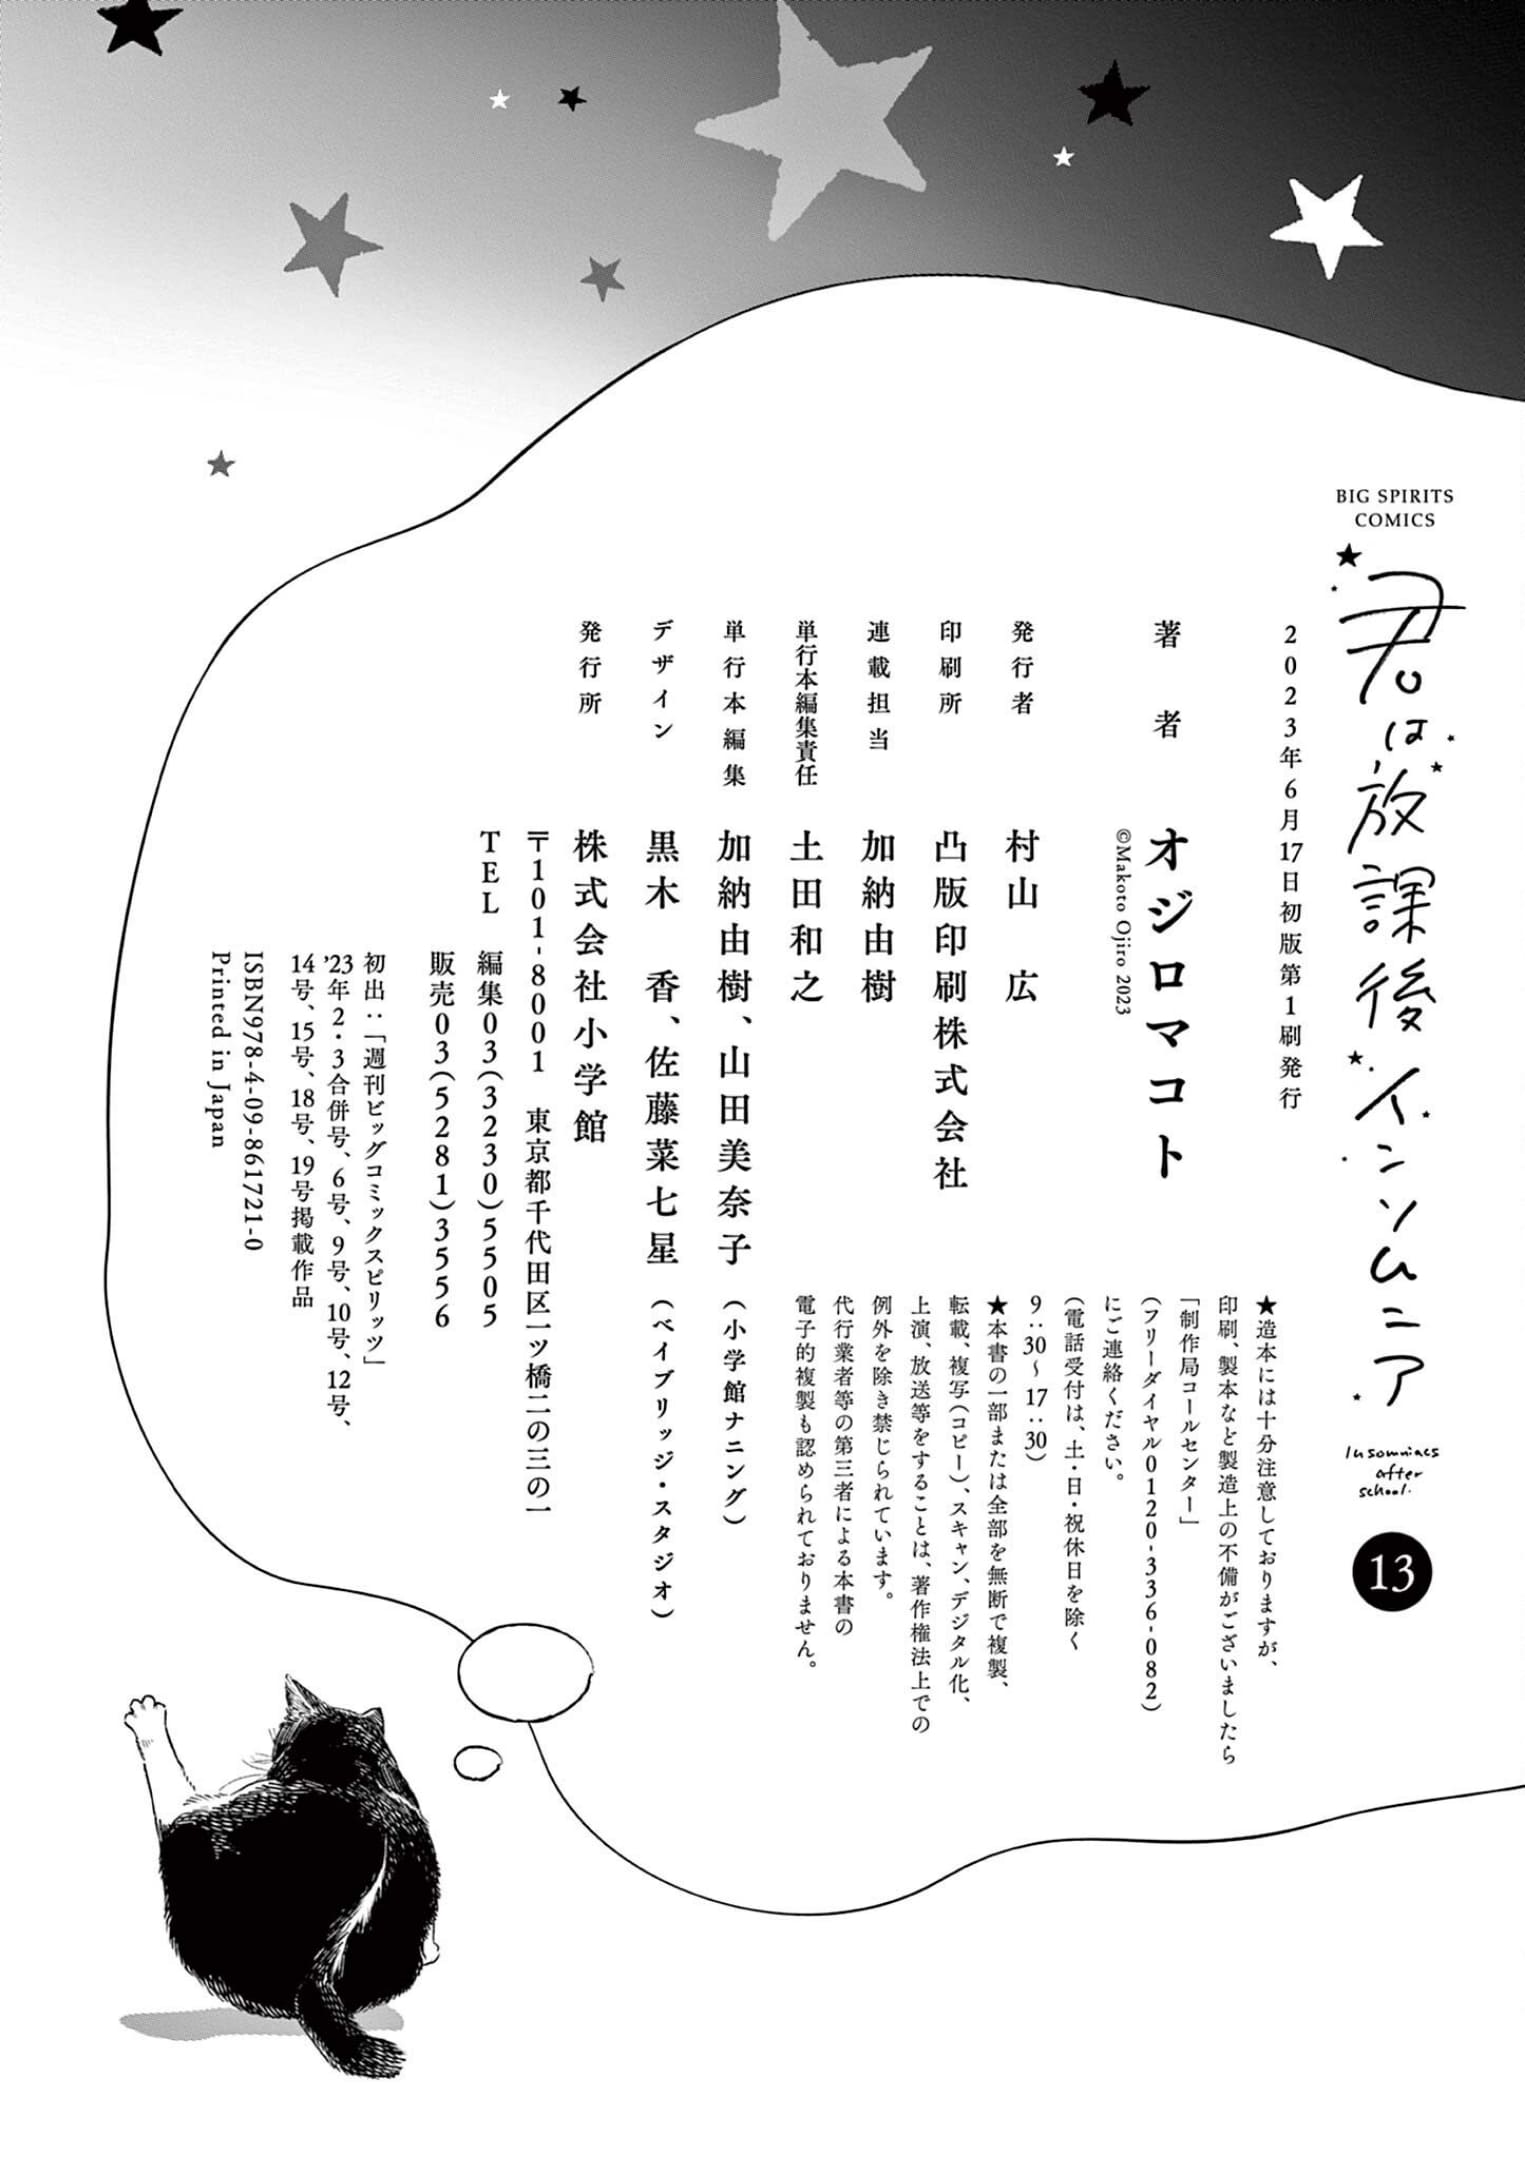 BIG SPIRITS
COMICS
君は放課後インソムニア
Insomniacs
after
school.
13
2023年6月17日初版第1刷発行
著者 オジロマコト
©Makoto Ojiro 2023
発行者 村山 広
印刷所 凸版印刷株式会社
連載担当 加納由樹
単行本編集責任 土田和之
単行本編集 加納由樹、山田美奈子(小学館ナニング)
デザイン 黒木 香、佐藤菜七星(ベイブリッジ・スタジオ)
発行所 株式会社小学館
〒101-8001 東京都千代田区一ツ橋二の三の一
TEL 編集03(3230)5505
販売03(5281)3556
初出:「週刊ビッグコミックスピリッツ」
'23年2・3合併号、6号、9号、10号、12号、
14号、15号、18号、19号掲載作品
ISBN978-4-09-861721-0
Printed in Japan
★造本には十分注意しておりますが、
印刷、製本など製造上の不備がございましたら
「制作局コールセンター」
(フリーダイヤル0120-336-082)
にご連絡ください。
(電話受付は、土・日・祝休日を除く
9:30〜17:30)
★本書の一部または全部を無断で複製、
転載、複写(コピー)、スキャン、デジタル化、
上演、放送等をすることは、著作権法上での
例外を除き禁じられています。
代行業者等の第三者による本書の
電子的複製も認められておりません。